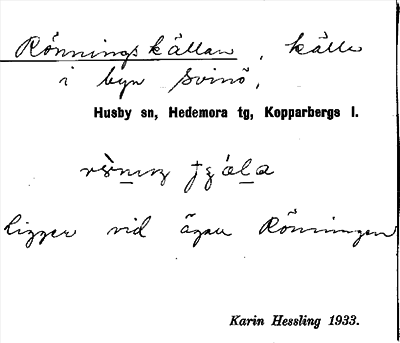 Rönningskällan, källa
i byn Svinö,
Husby sn, Hedemora tg, Kopparbergs l.
Ligger vid ägan Rönningen
Karin Hessling 1933.